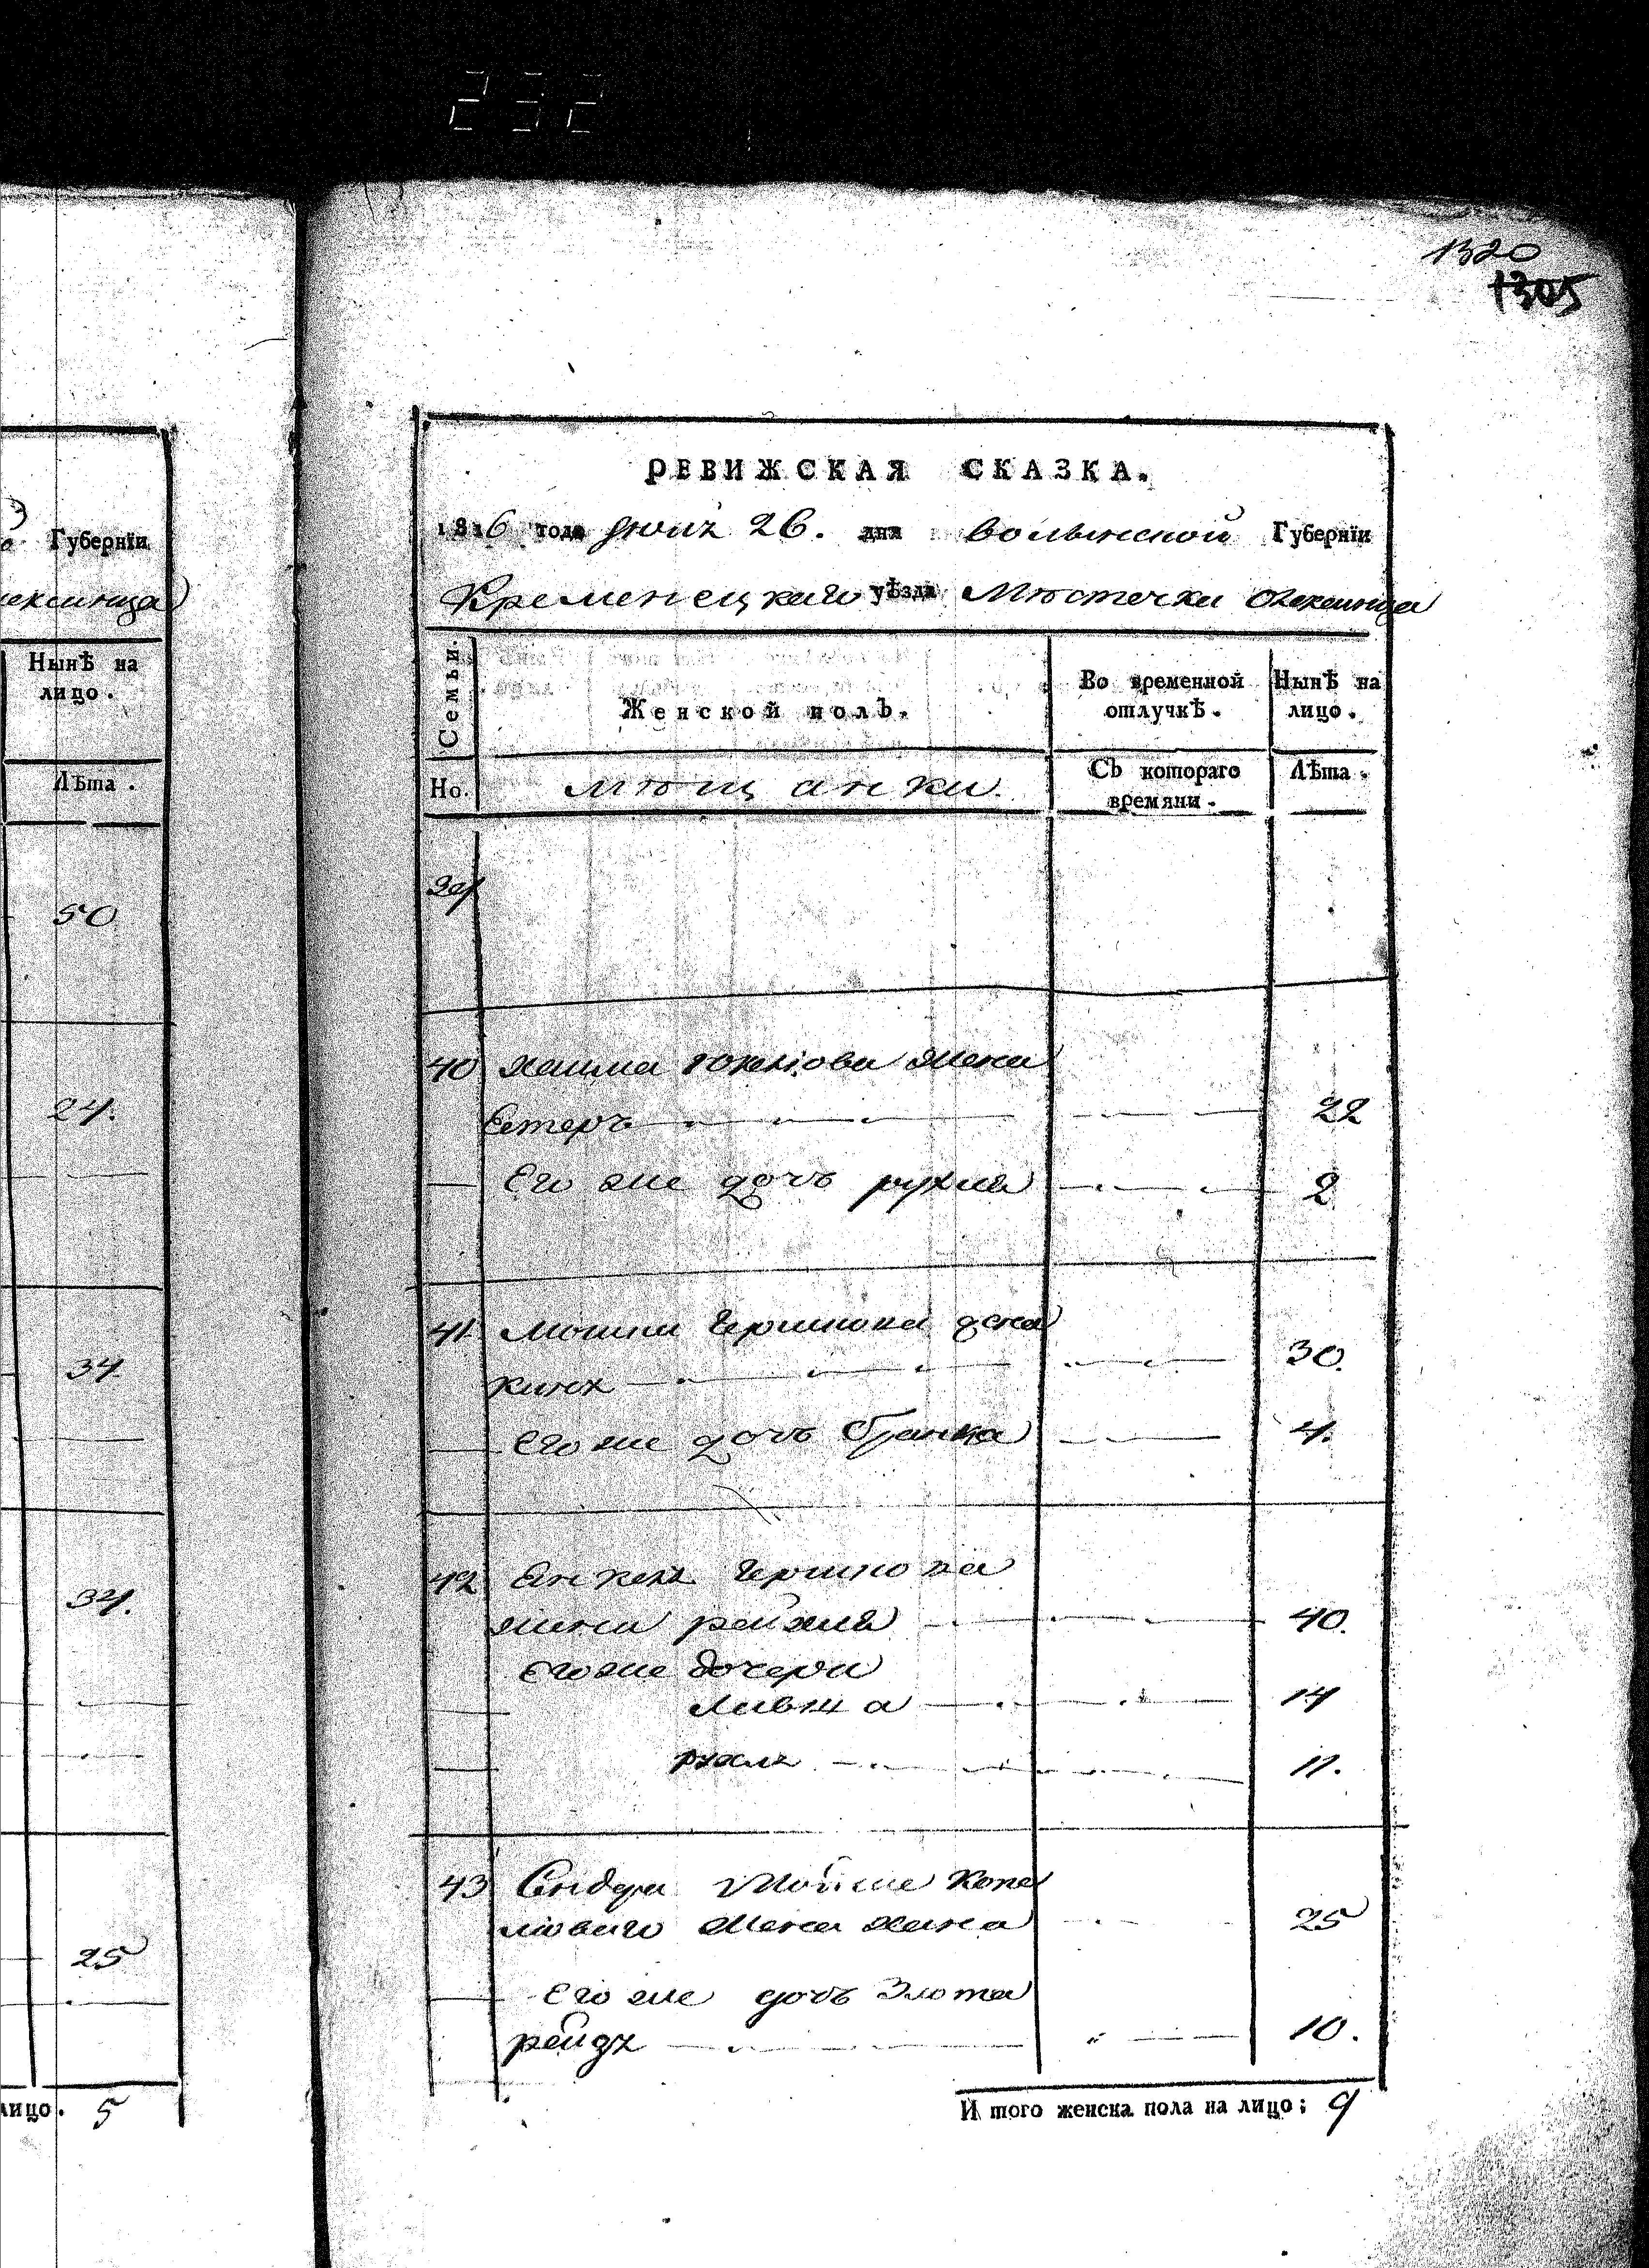 232
1320
1305
Губерніи
Нынѣ на
лицо.
Лѣта.
50
24.
34
34.
25
лицо. 5
РЕВИЖСКАЯ СКАЗКА.
1816 года 26. дня Волынской Губерніи
Кременецкаго уѣзда Мѣстечка
Семьи.
Женской полъ.
Во временной
отлучкѣ.
Нынѣ на
лицо.
Но.
мѣщанки.
Съ котораго
времяни.
Лѣта.
40 жена
Естеръ 22
Его же дочь рухля 2
41 Мошки Гершкова жена
30.
его же дочь бранка 4.
42 Гершкова
жена рейзля 40.
его же дочери
Ливша 14
11.
43 Мойше Копе
жена хана 25
Его же дочь Злота
рейдз 10.
И того женска пола на лицо: 9